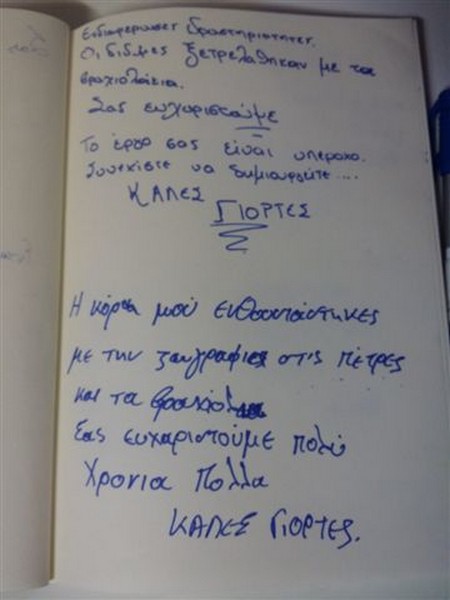 Ενδιαφέρουσες δραστηριότητες.
Οι δίδυμες ξετρελάθηκαν με τα
βραχιολάκια.
Σας ευχαριστούμε
Το έργο σας είναι υπέροχο.
Συνεχίστε να δημιουργείτε....
ΚΑΛΕΣ
ΓΙΟΡΤΕΣ
Η κόρη μου ενθουσιάστηκες
με την ζωγραφιες στις πέτρες
και τα βραχιολια
Σας ευχαριστούμε πολύ
Χρονια Πολλα
ΚΑΛΕΣ ΓΙΟΡΤΕΣ.